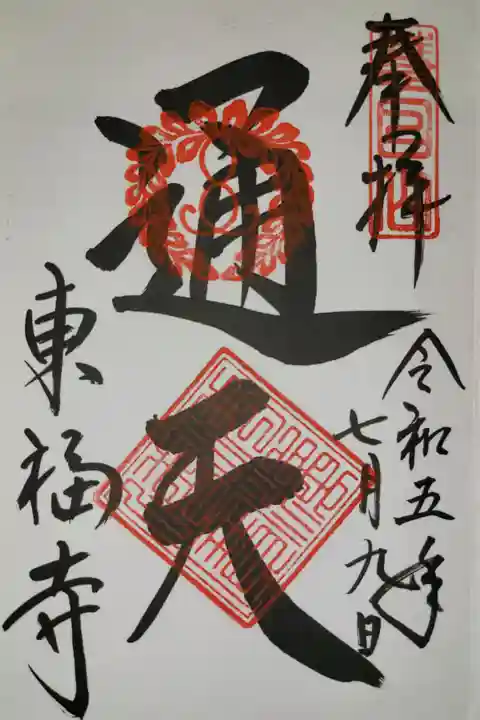 奉拝
令和五年
七月九日
通天
東福寺